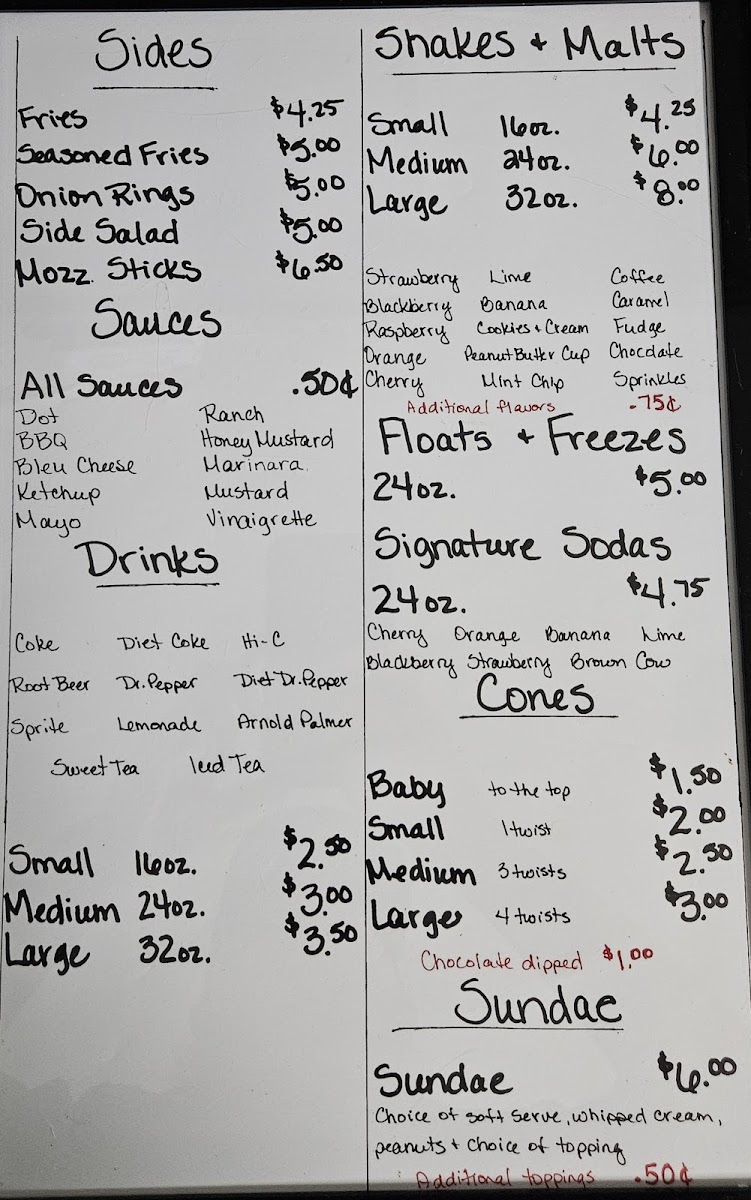 Sides
Fries $4.25
Seasoned Fries $5.00
Onion Rings $5.00
Side Salad $5.00
Mozz. Sticks $6.50
Sauces
All Sauces .50¢
Dot Ranch
BBQ Honey Mustard
Bleu Cheese Marinara
Ketchup Mustard
Mayo Vinaigrette
Drinks
Coke Diet Coke Hi-C
Root Beer Dr. Pepper Diet Dr. Pepper
Sprite Lemonade Arnold Palmer
Sweet Tea Iced Tea
Small 16oz. $2.50
Medium 24oz. $3.00
Large 32oz. $3.50
Shakes + Malts
Small 16oz. $4.25
Medium 24oz. $6.00
Large 32oz. $8.00
Strawberry Lime Coffee
Blackberry Banana Caramel
Raspberry Cookies + Cream Fudge
Orange Peanut Butter Cup Chocolate
Cherry Mint Chip Sprinkles
Additional flavors .75¢
Floats + Freezes
24oz. $5.00
Signature Sodas
24oz. $4.75
Cherry Orange Banana Lime
Blackberry Strawberry Brown Cow
Cones
Baby to the top $1.50
Small 1 twist $2.00
Medium 3 twists $2.50
Large 4 twists $3.00
Chocolate dipped $1.00
Sundae
Sundae $6.00
Choice of soft serve, whipped cream,
peanuts + choice of topping
Additional toppings .50¢